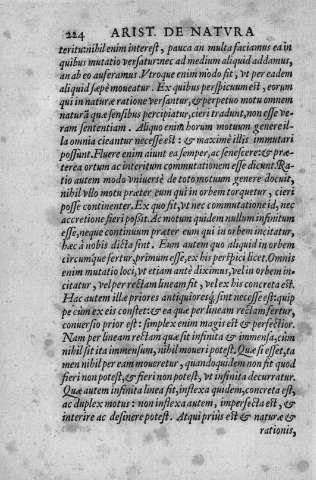 224 ARIST. DE NATVRA
teritu: nihil enim interest, pauca an multa faciamus ea in
quibus mutatio versatur: nec ad medium aliquid addamus,
an ab eo auferamus. Vtroque enim modo fit, vt per eadem
aliquid sæpè moueatur. Ex quibus perspicuum est, eorum
qui in naturæ ratione versantur, & perpetuo motu omnem
naturā quæ sensibus percipiatur, cieri tradunt, non esse ve-
ram sententiam. Aliquo enim horum motuum genere il-
la omnia cieantur necesse est: & maximè illis immutari
possunt. Fluere enim aiunt ea semper, ac senescere: & præ-
terea ortum ac interitum commutationem esse dicunt. Ra-
tio autem modo vniuersè de toto motuum genere docuit,
nihil vllo motu præter eum qui in orbem torquetur, cieri
posse continenter. Ex quo fit, vt nec commutatione id, nec
accretione fieri possit. Ac motum quidem nullum infinitum
esse, neque continuum præter eum qui in orbem incitatur,
hæc à nobis dicta sint. Eum autem quo aliquid in orbem
circumque fertur, primum esse, ex his perspici licet. Omnis
enim mutatio loci, vt etiam antè diximus, vel in orbem in-
citatur, vel per rectam lineam fit, vel ex his concreta est.
Hac autem illæ priores antiquioresq́, sint necesse est: quip
pe cùm ex eis constet: & ea quæ per lineam rectam fertur,
conuersio prior est: simplex enim magis est & perfectior.
Nam per lineam rectam quæ sit infinita & immensa, cùm
nihil sit ita immensum, nihil moueri potest. Quæ si esset, ta
men nihil per eam moueretur, quandoquidem non fit quod
fieri non potest, & fieri non potest, vt infinita decurratur.
Quæ autem infinita linea fit, inflexa quidem, concreta est,
ac duplex motus: non inflexa autem, imperfecta est, &
interire ac desinere potest. Atqui prius est & naturæ &
rationis,